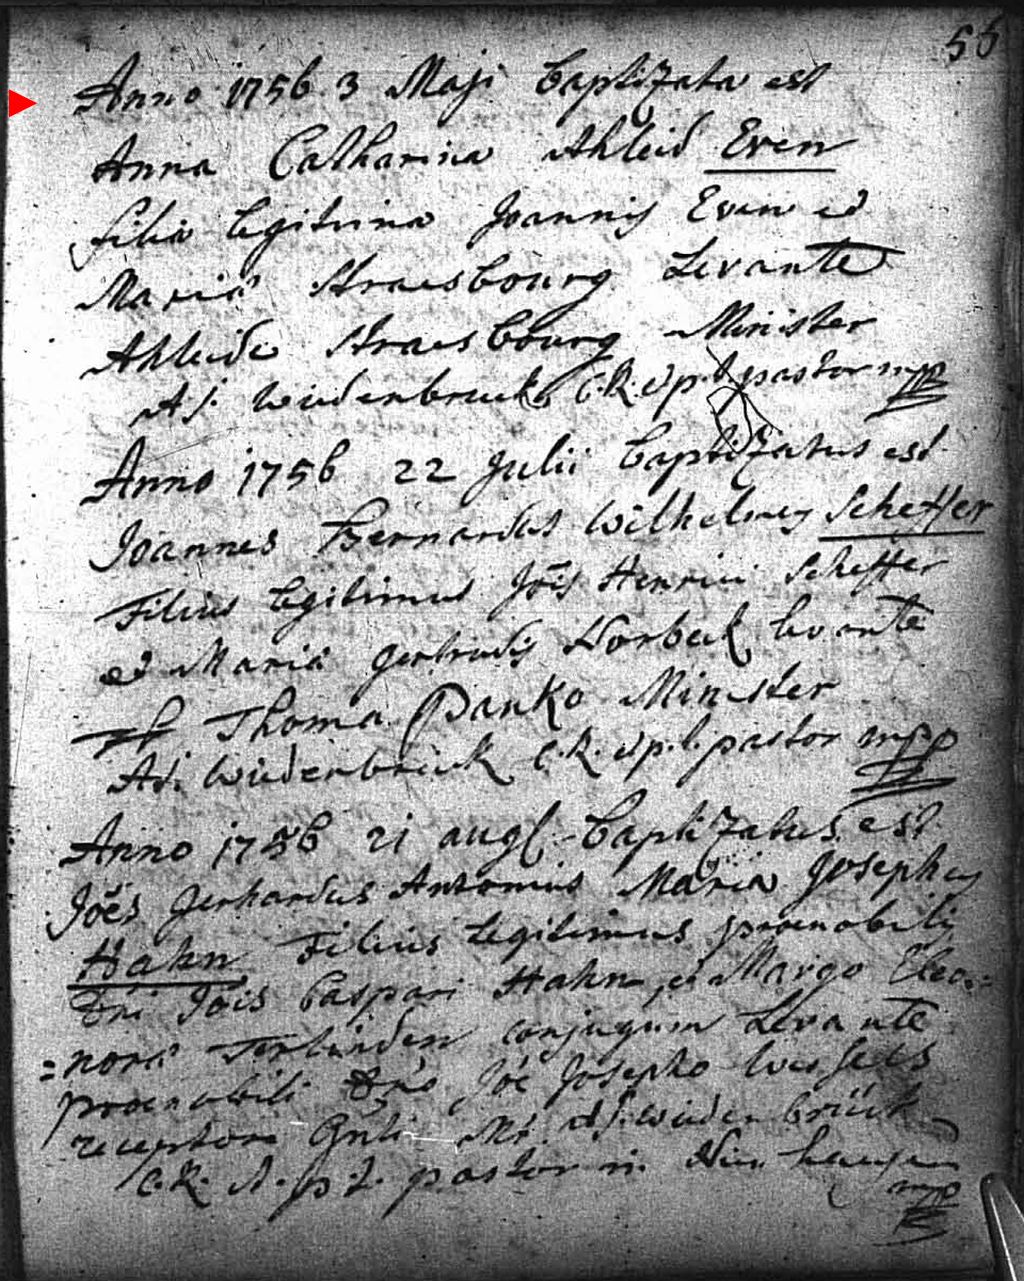 56
Anno 1756 3 Maji baptizata est
Anna Catharina Ahleid Even
filia legitima Joannis Even et
Mariæ Straesbourg Levante
Ahleide Straesbourg Minister
Ad. Wiedenbruck C.R. et p.t. pastor mpp
Anno 1756 22 Julii baptizatus est
Joannes Bernardus Wilhelmus Scheffer
Filius legitimus Jõis Henrici Scheffer
et Mariæ gertrudis Norbeck levante
Thoma Panko Minister
Ad. Wiedenbrück C.R. et p.t. pastor mpp
Anno 1756 21 augt. baptizatus est
Jões gerhardus Antonius Maria Josephus
Hahn Filius legitimus prænobilis
Dni Jois Caspari Hahn et Margo Eleo=
=noræ Terlinden conjugum Levante
prænobili Dno Jõe Josepho
receptore Mr. Ad. Wiedenbrück
C.R. p.t. pastor in
mpp